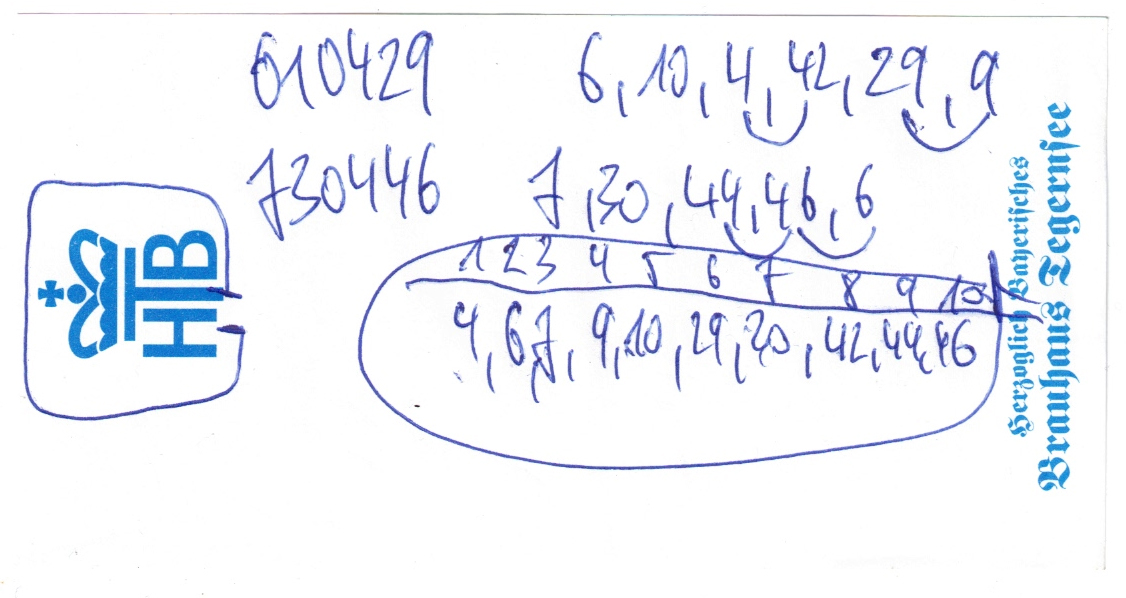 610429 6, 10, 4, 42, 29, 9
730446 7, 30, 44, 46, 6
1 2 3 4 5 6 7 8 9 10
4, 6, 7, 9, 10, 29, 30, 42, 44, 46
HTB
Herzoglich Bayerisches
Brauhaus Tegernsee